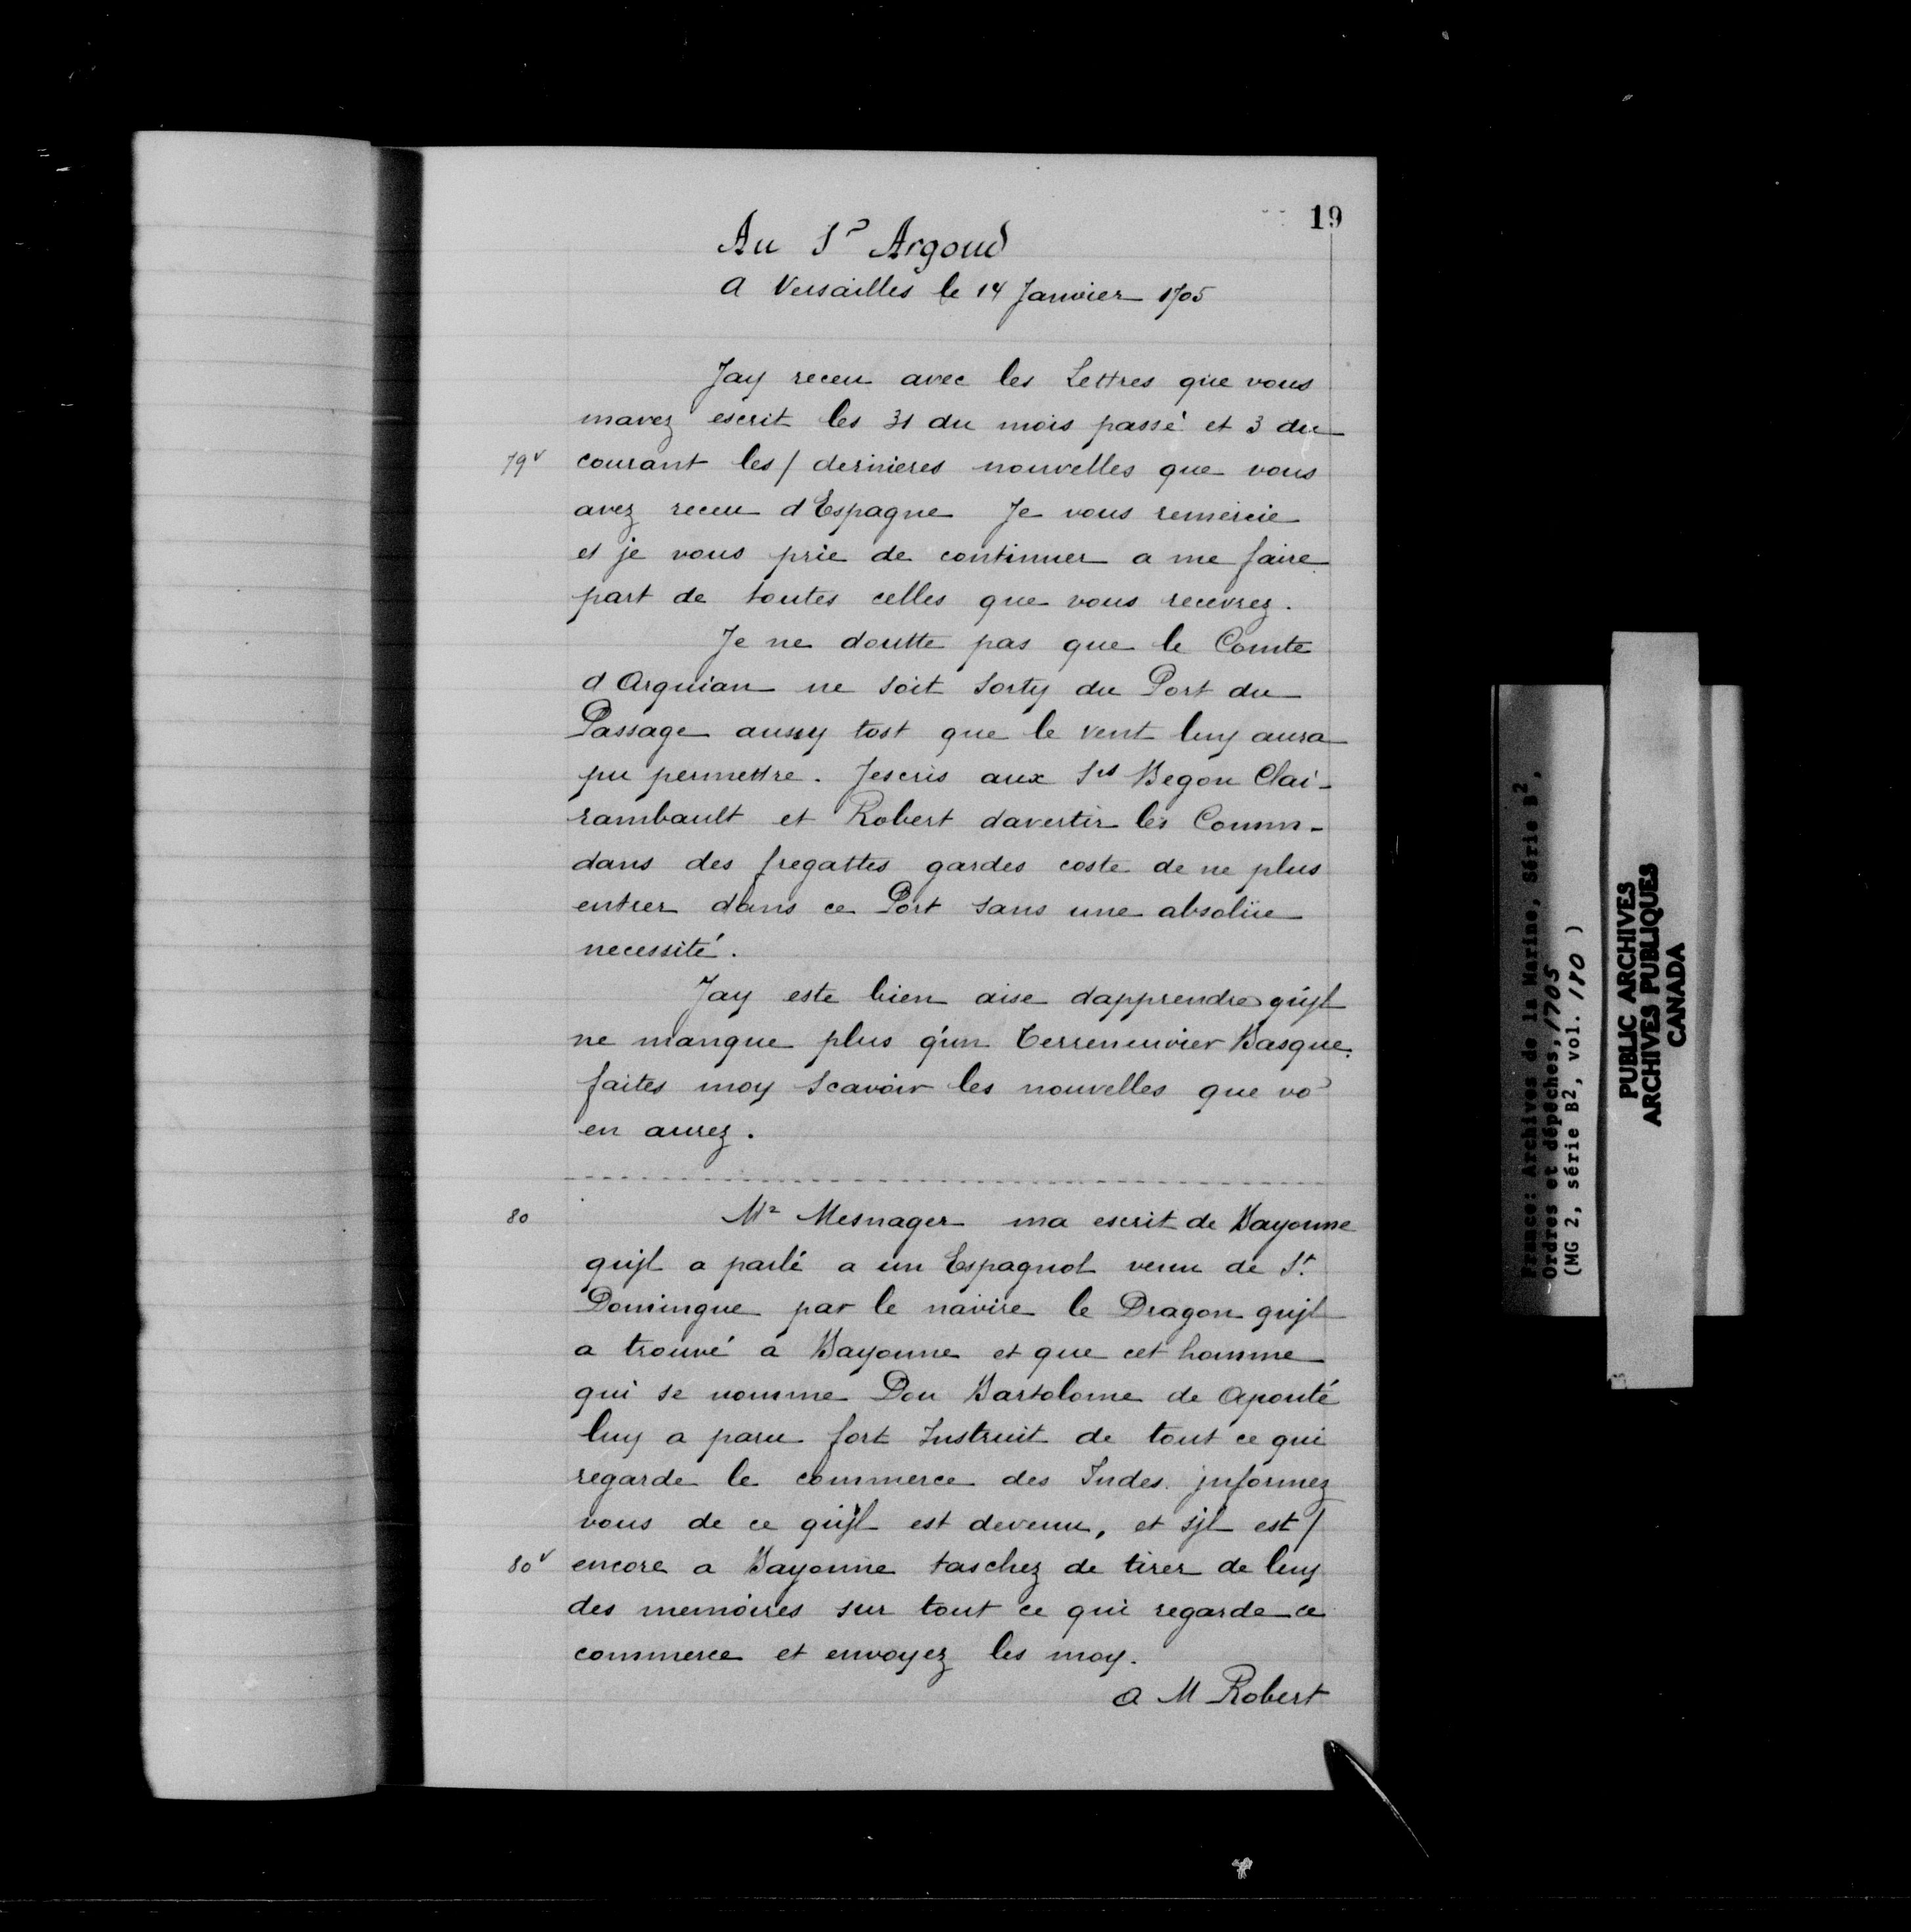 19
Au Sr Argoud
A Versailles le 14 Janvier 1705
Jay receu avec les Lettres que vous
mavez escrit les 31 du mois passé et 3 du
79v courant les / dernieres nouvelles que vous
avez receu d'Espagne Je vous remercie
et je vous prie de continuer a me faire
part de toutes celles que vous recevrez.
Je ne doutte pas que le Comte
d Arquian ne soit sorty du Port du
Passage aussy tost que le vent luy aura
pu permettre. Jescris aux Srs Begon Clai-
rambault et Robert davertir les Comm-
dans des fregattes gardes coste de ne plus
entrer dans ce Port sans une absolüe
necessité.
Jay este bien aise dapprendre qujl
ne manque plus q'un Terreneuvier Basque.
faites moy scavoir les nouvelles que vo
en aurez.
80 Mr Mesnager ma escrit de Bayonne
qujl a parlé a un Espagnol venu de St.
Domingue par le navire le Dragon qujl
a trouvé á Bayonne et que cet homme
qui se nomme Don Bartolome de Aponté
luy a paru fort Instruit de tout ce qui
regarde le commerce des Indes. jnformez
vous de ce qujl est devenu, et sjl est /
80v encore a Bayonne taschez de tirer de luy
des memoires sur tout ce qui regarde ce
commerce et envoyez les moy.
A M Robert
France: Archives de la Marine, Série B2,
Ordres et dépêches, 1705
(MG 2, série B2, vol. 180 )
PUBLIC ARCHIVES
ARCHIVES PUBLIQUES
CANADA